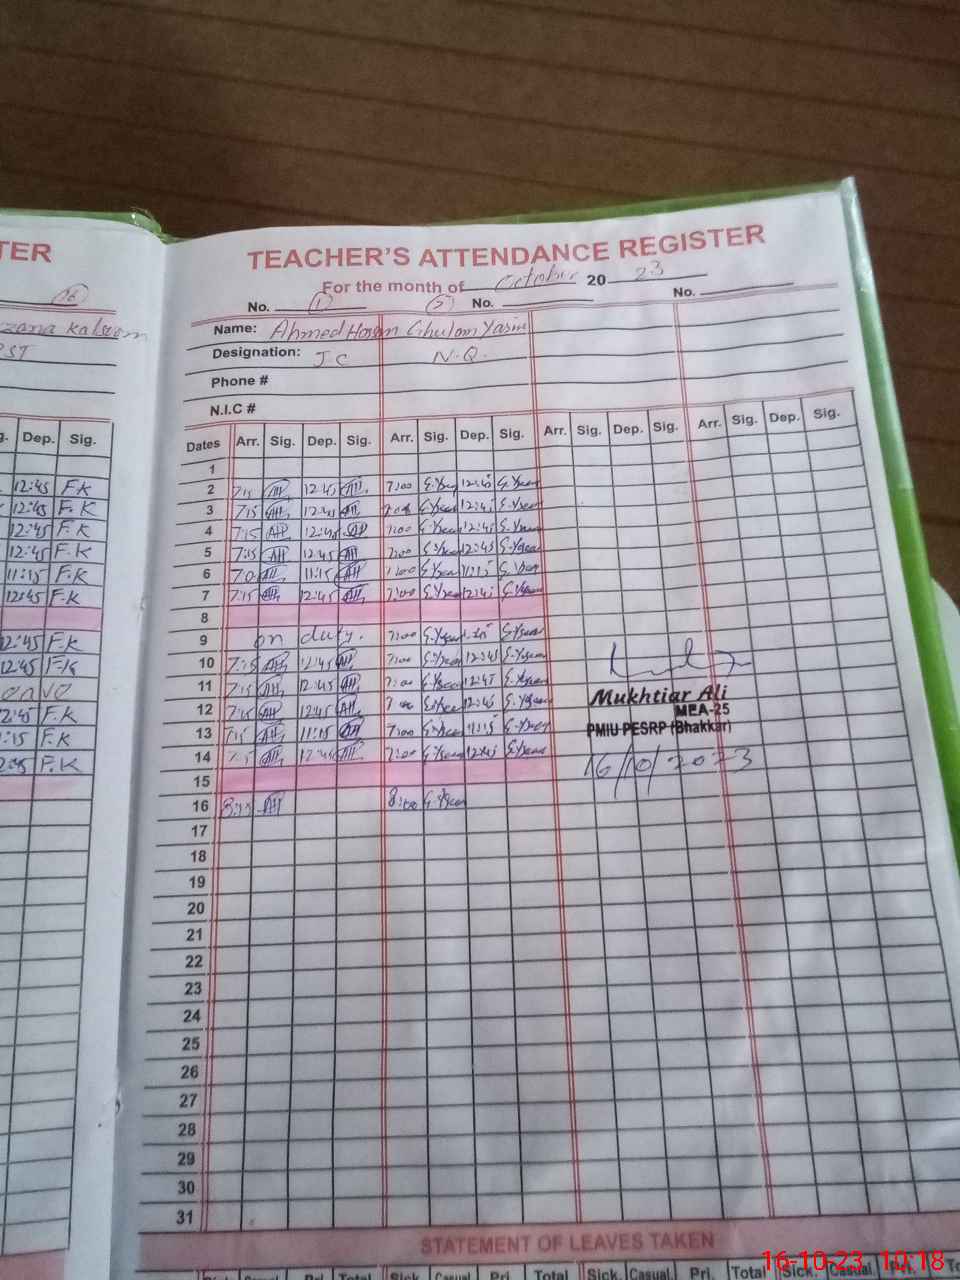 TER
16
zana Kalsoom
PST
Dep. Sig.
12:45 F.K
12:45 F.K
12:45 F.K
12:45 F.K
11:15 F.K
12:45 F.K
12:45 F.K
12:45 F.K
12:45 F.K
:15 F.K
2:45 F.K
TEACHER'S ATTENDANCE REGISTER
For the month of October 20 23
No. 1 5 No. No.
Name: Ahmed Hassan Ghulam Yasin
Designation: J.C N.Q.
Phone #
N.I.C #
Dates Arr. Sig. Dep. Sig. Arr. Sig. Dep. Sig. Arr. Sig. Dep. Sig. Arr. Sig. Dep. Sig.
1
2 7:15 AH 12:45 AH 7:00 12:45
3 7:15 AH 12:45 AH 12:45
4 7:15 AH AH 7:00 12:45
5 7:15 AH 12:45 AH 7:00 12:45
6 11:15 AH 11:15
7 7:15 AH 12:45 AH 7:00 12:45
8
9 on duty. 7:00
10 7:15 AH 12:45 AH 7:00 12:45
11 7:15 AH 12:45 AH 7:00 12:45
12 AH 12:45 AH 12:45
13 AH 11:15 AH 7:00 11:15
14 AH 12:45 AH 7:00 12:45
15
16 AH 8:00
17
18
19
20
21
22
23
24
25
26
27
28
29
30
31
Mukhtiar Ali
MEA-25
PMIU PESRP (Bhakkar)
16/10/2023
STATEMENT OF LEAVES TAKEN
Sick Casual Pri. Total Sick Casual Pri. Total Sick. Casual. Pri. Total Sick. Casual. Pri.
16-10-23 10:18